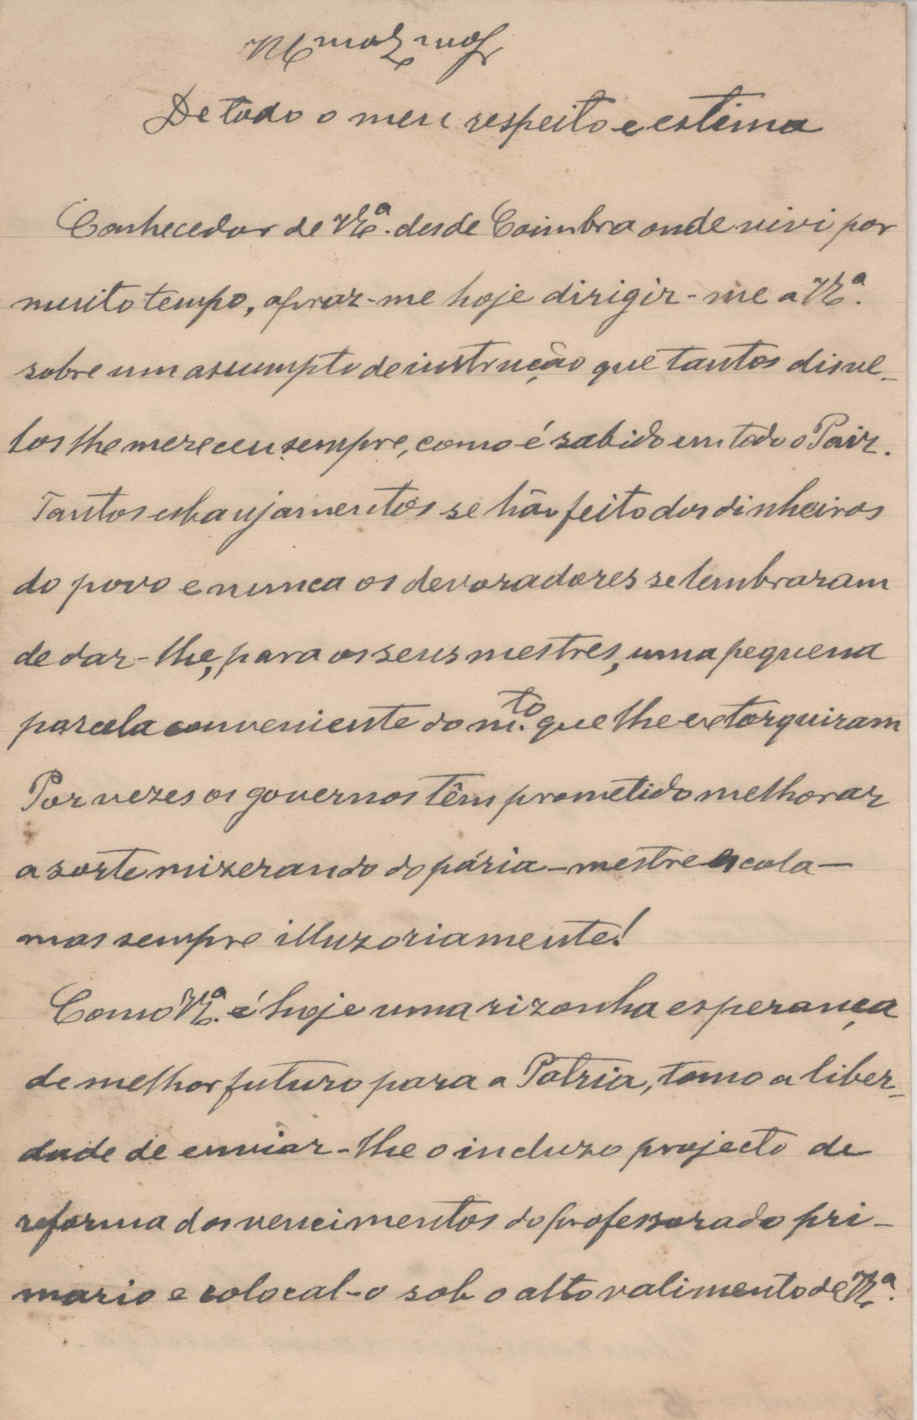 De todo o meu respeito e estima
Conhecedor de V. Eª. desde Coimbra onde vivi por
muito tempo, apraz-me hoje dirigir-me a V. Eª.
sobre um assumpto de instrucção que tantos disve-
los lhe mereceu sempre, como é sabido em todo o Paiz.
Tantos esbanjamentos se hão feito dos dinheiros
do povo e nunca os devoradores se lembraram
de dar-lhe, para os seus mestres, uma pequena
parcela conveniente do m.to que lhe extorquiram
Por vezes os governos têm prometido melhorar
a sorte mizerando do pária—mestre escola—
mas sempre illuzoriamente!
Como V. Eª. é hoje uma rizonha esperança
de melhor futuro para a Pátria, tomo a liber-
dade de enviar-lhe o incluzo projecto de
reforma dos vencimentos do professorado pri-
mario e colocal-o sob o alto valimento de V. Eª.